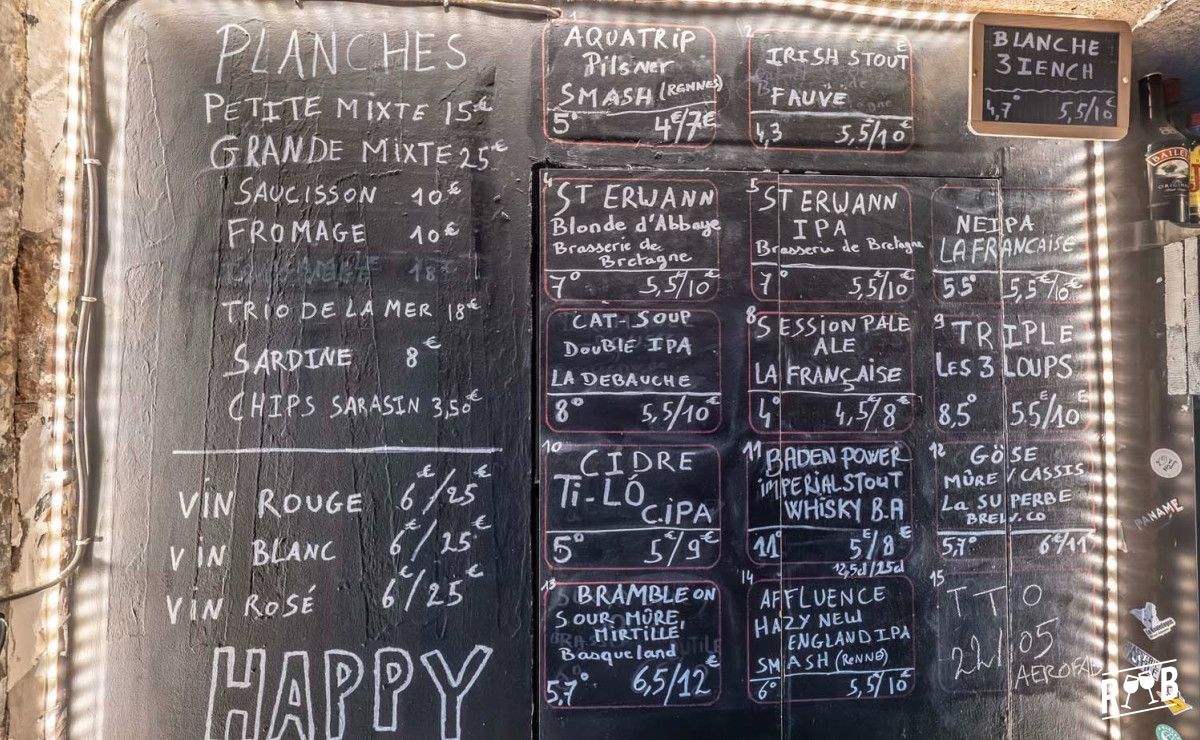 PLANCHES
PETITE MIXTE 15€
GRANDE MIXTE 25€
SAUCISSON 10€
FROMAGE 10€
18€
TRIO DE LA MER 18€
SARDINE 8€
CHIPS SARASIN 3,50€
VIN ROUGE 6€/25€
VIN BLANC 6€/25€
VIN ROSÉ 6€/25€
HAPPY
AQUATRIP
Pilsner
SMASH (RENNES)
5° 4€/7€
2
IRISH STOUT
FAUVE
4,3 5,5/10€
BLANCHE
3IENCH
4,7° 5,5/10
4
ST ERWANN
Blonde d'Abbaye
Brasserie de
Bretagne
7° 5,5/10€
5
ST ERWANN
IPA
Brasserie de Bretagne
7° 5,5/10€
NEIPA
LA FRANCAISE
5,5° 5,5€/10€
CAT-SOUP
DOUBLE IPA
LA DEBAUCHE
8° 5,5/10€
8
SESSION PALE
ALE
LA FRANÇAISE
4° 4,5€/8€
9
TRIPLE
LES 3 LOUPS
8,5° 5,5€/10€
10
CIDRE
Ti-LÓ
C.iPA
5° 5€/9€
11
BADEN POWER
iMPERIAL STOUT
WHISKY B.A
11° 5€/8€
12,5cl/25cl
12
GÖSE
MÛRE/CASSIS
La SUPERBE
BREW.CO
5,7° 6€/11€
13
BRAMBLE ON
SOUR MÛRE,
MIRTILLE
Basqueland
5,7° 6,5/12€
14
AFFLUENCE
HAZY NEW
ENGLAND IPA
SMASH (RENNE)
6° 5,5/10€
15
TTO
22/05
BAILEYS
ORIGINAL
PANAME
R B